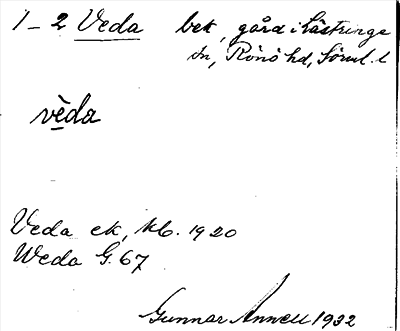 1-2 Veda bek, gård i Lästringe
sn, Rönö hd, Söml. l
vèda
Veda ek, kb. 1920
Weda G. 67
Gunnar Annell 1932